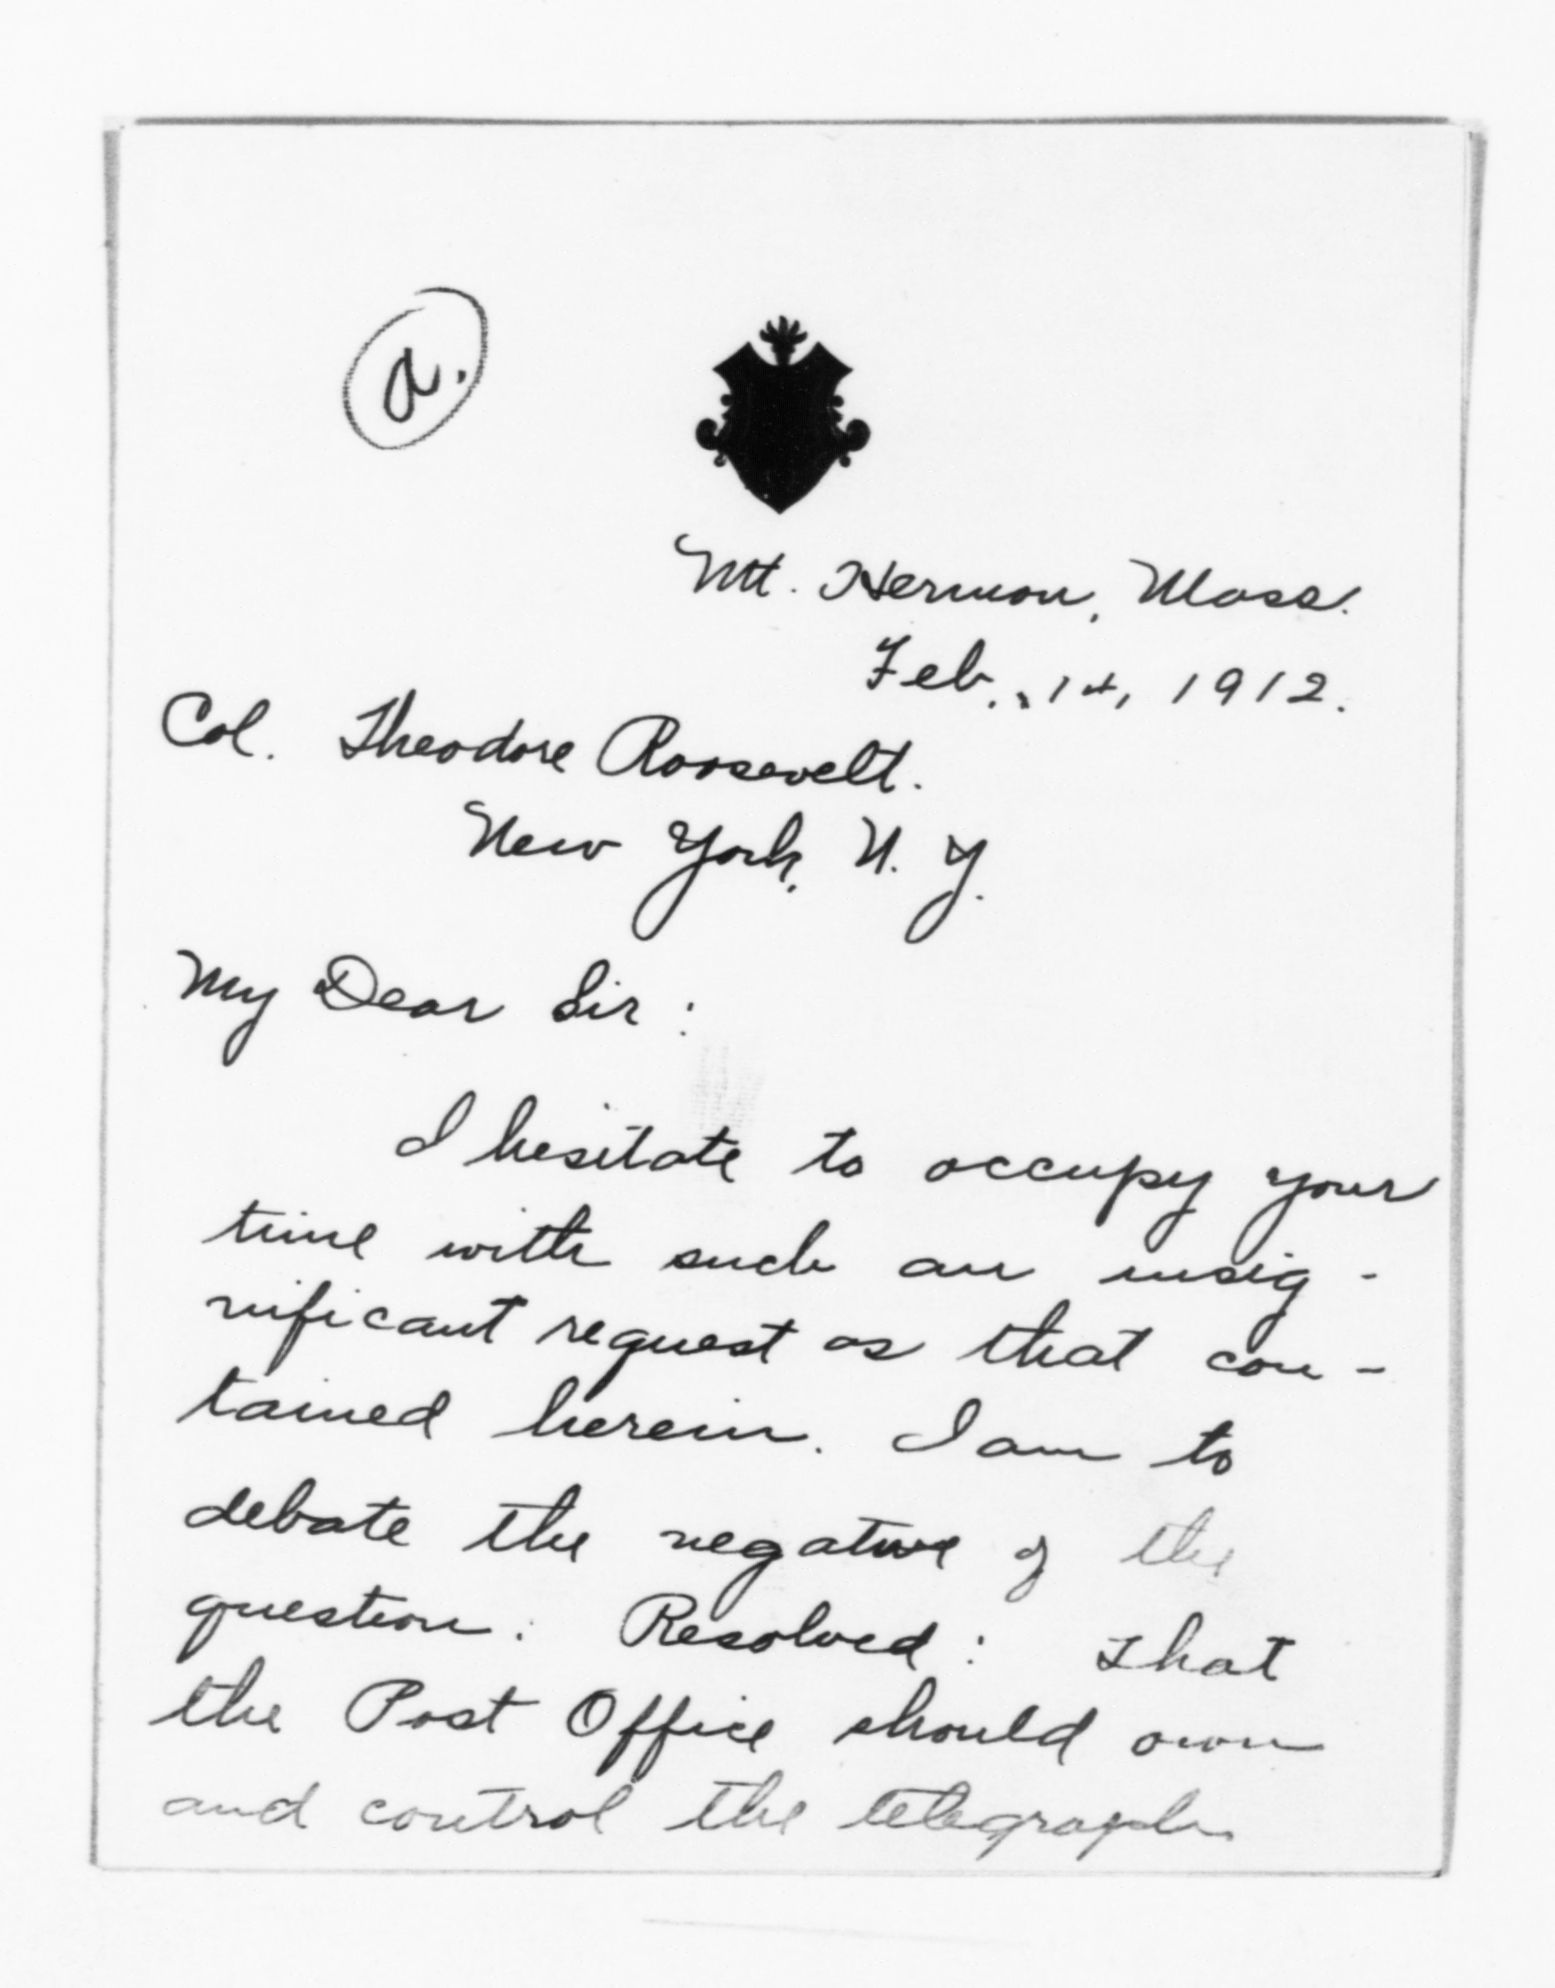 a.
Mt. Hermon, Mass.
Feb., 14, 1912.
Col. Theodore Roosevelt.
New York, N. Y.
My Dear Sir:
I hesitate to occupy your
time with such an insig-
nificant request as that con-
tained herein. I am to
debate the negative of the
question: Resolved: That
the Post Office should own
and control the telegraph